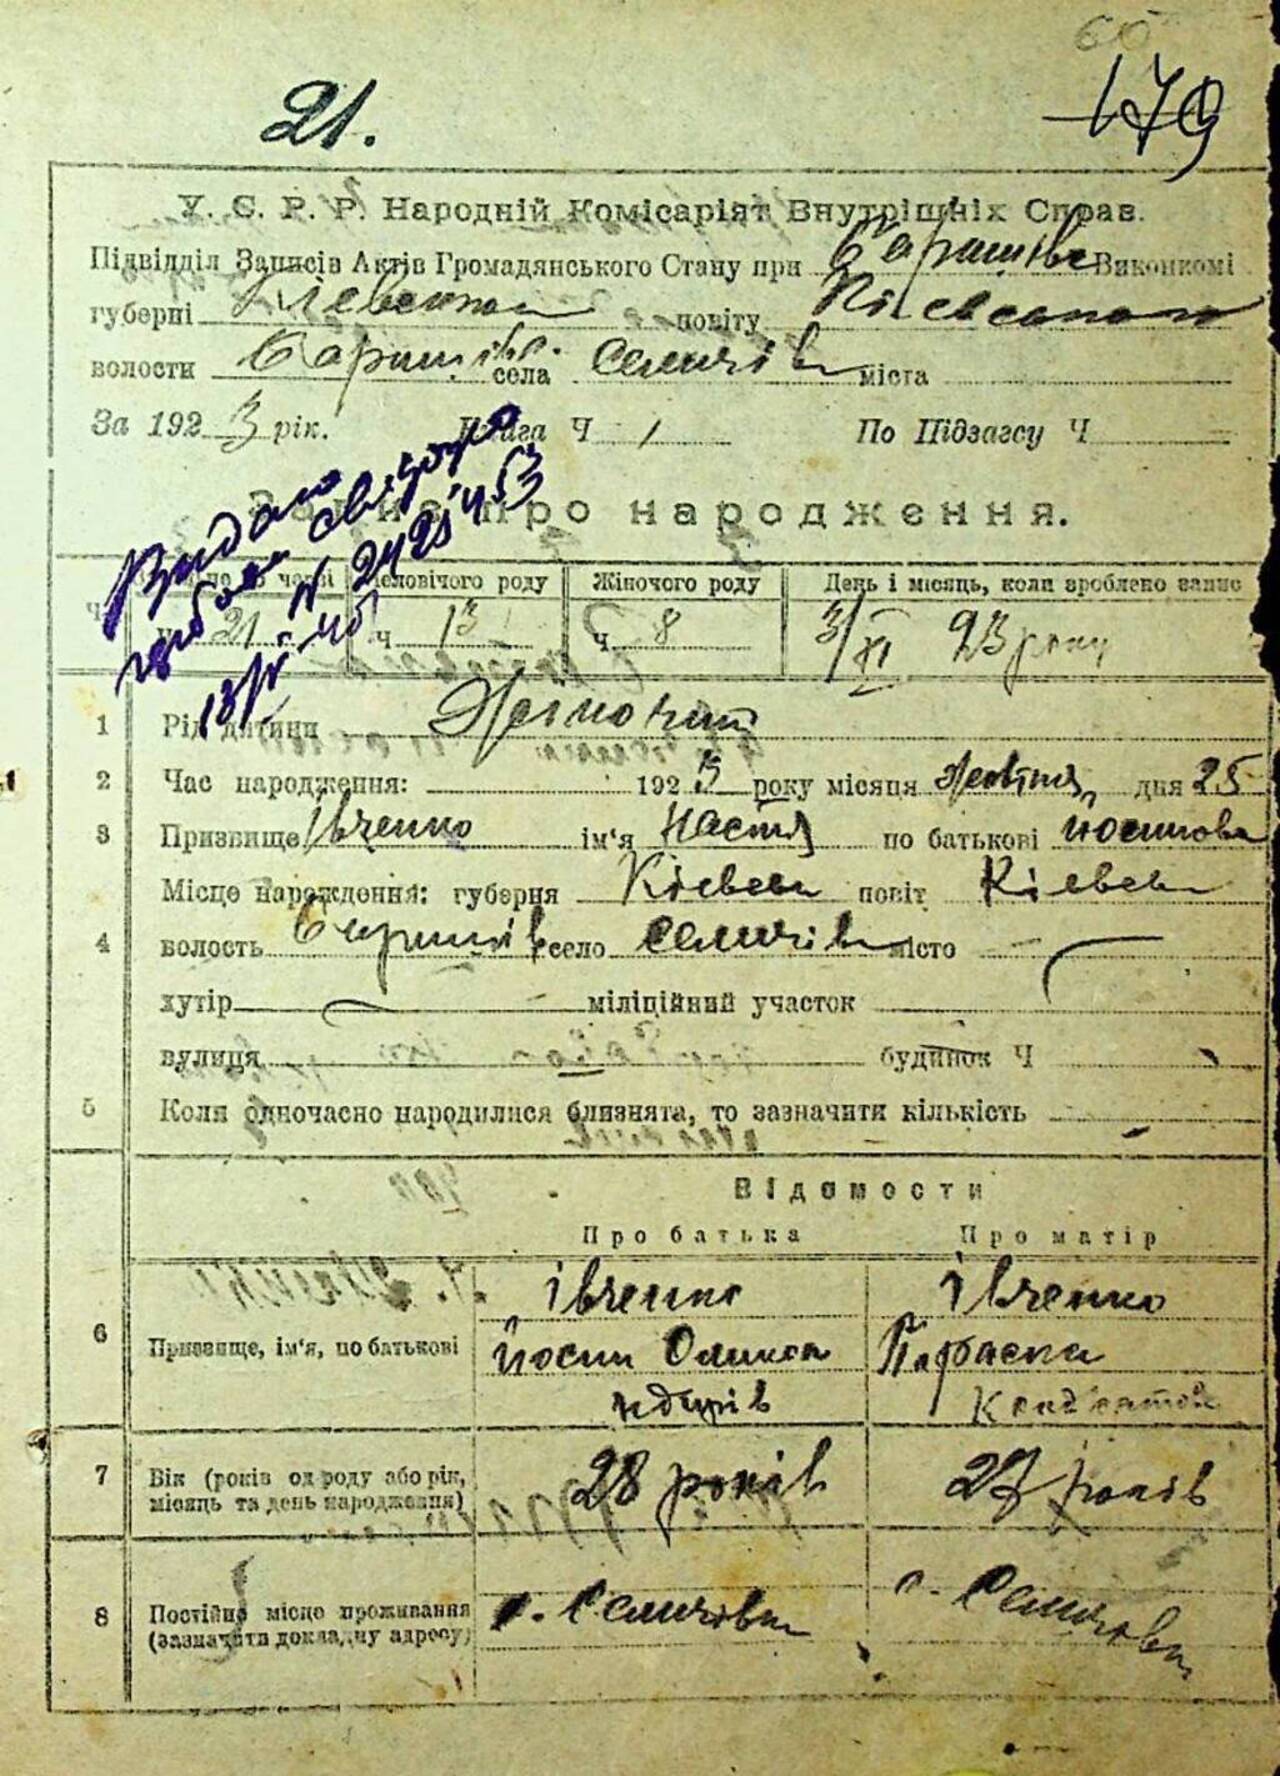 60
21.
179
У. С. Р. Р. Народній Комісаріят Внутрішніх Справ.
Підвідділ Записів Актів Громадянського Стану при Баришівс Виконкомі
губерні Київської повіту Київського
волости Баришівс. села Селичівк міста
За 1923 рік. Книга Ч 1 По Підзагсу Ч
Видано
N 2425453
Запис про народження.
Чоловічого роду Жіночого роду День і місяць, коли зроблено запис
21 ч 13 ч 8 3/XI 23 року
1 Рід дитини Жіночий
2 Час народження: 1923 року місяця Жовтня дня 25
3 Призвище Івченко ім'я Настя по батькові Йосипова
Місце народження: губерня Київськ повіт Київськ
4 волость Баришівс село Селичівк місто
хутір міліційний участок
вулиця будинок Ч
5 Коли одночасно народилися близнята, то зазначити кількість
Відомости
Про батька Про матір
6 Призвище, ім'я, по батькові Івченко Івченко
Йосип Олекса Параска
ндрів
7 Вік (років од роду або рік, місяць та день народження) 28 років 27 років
8 Постійне місце проживання (зазначити докладну адресу) с. Селичівка с. Селичівка